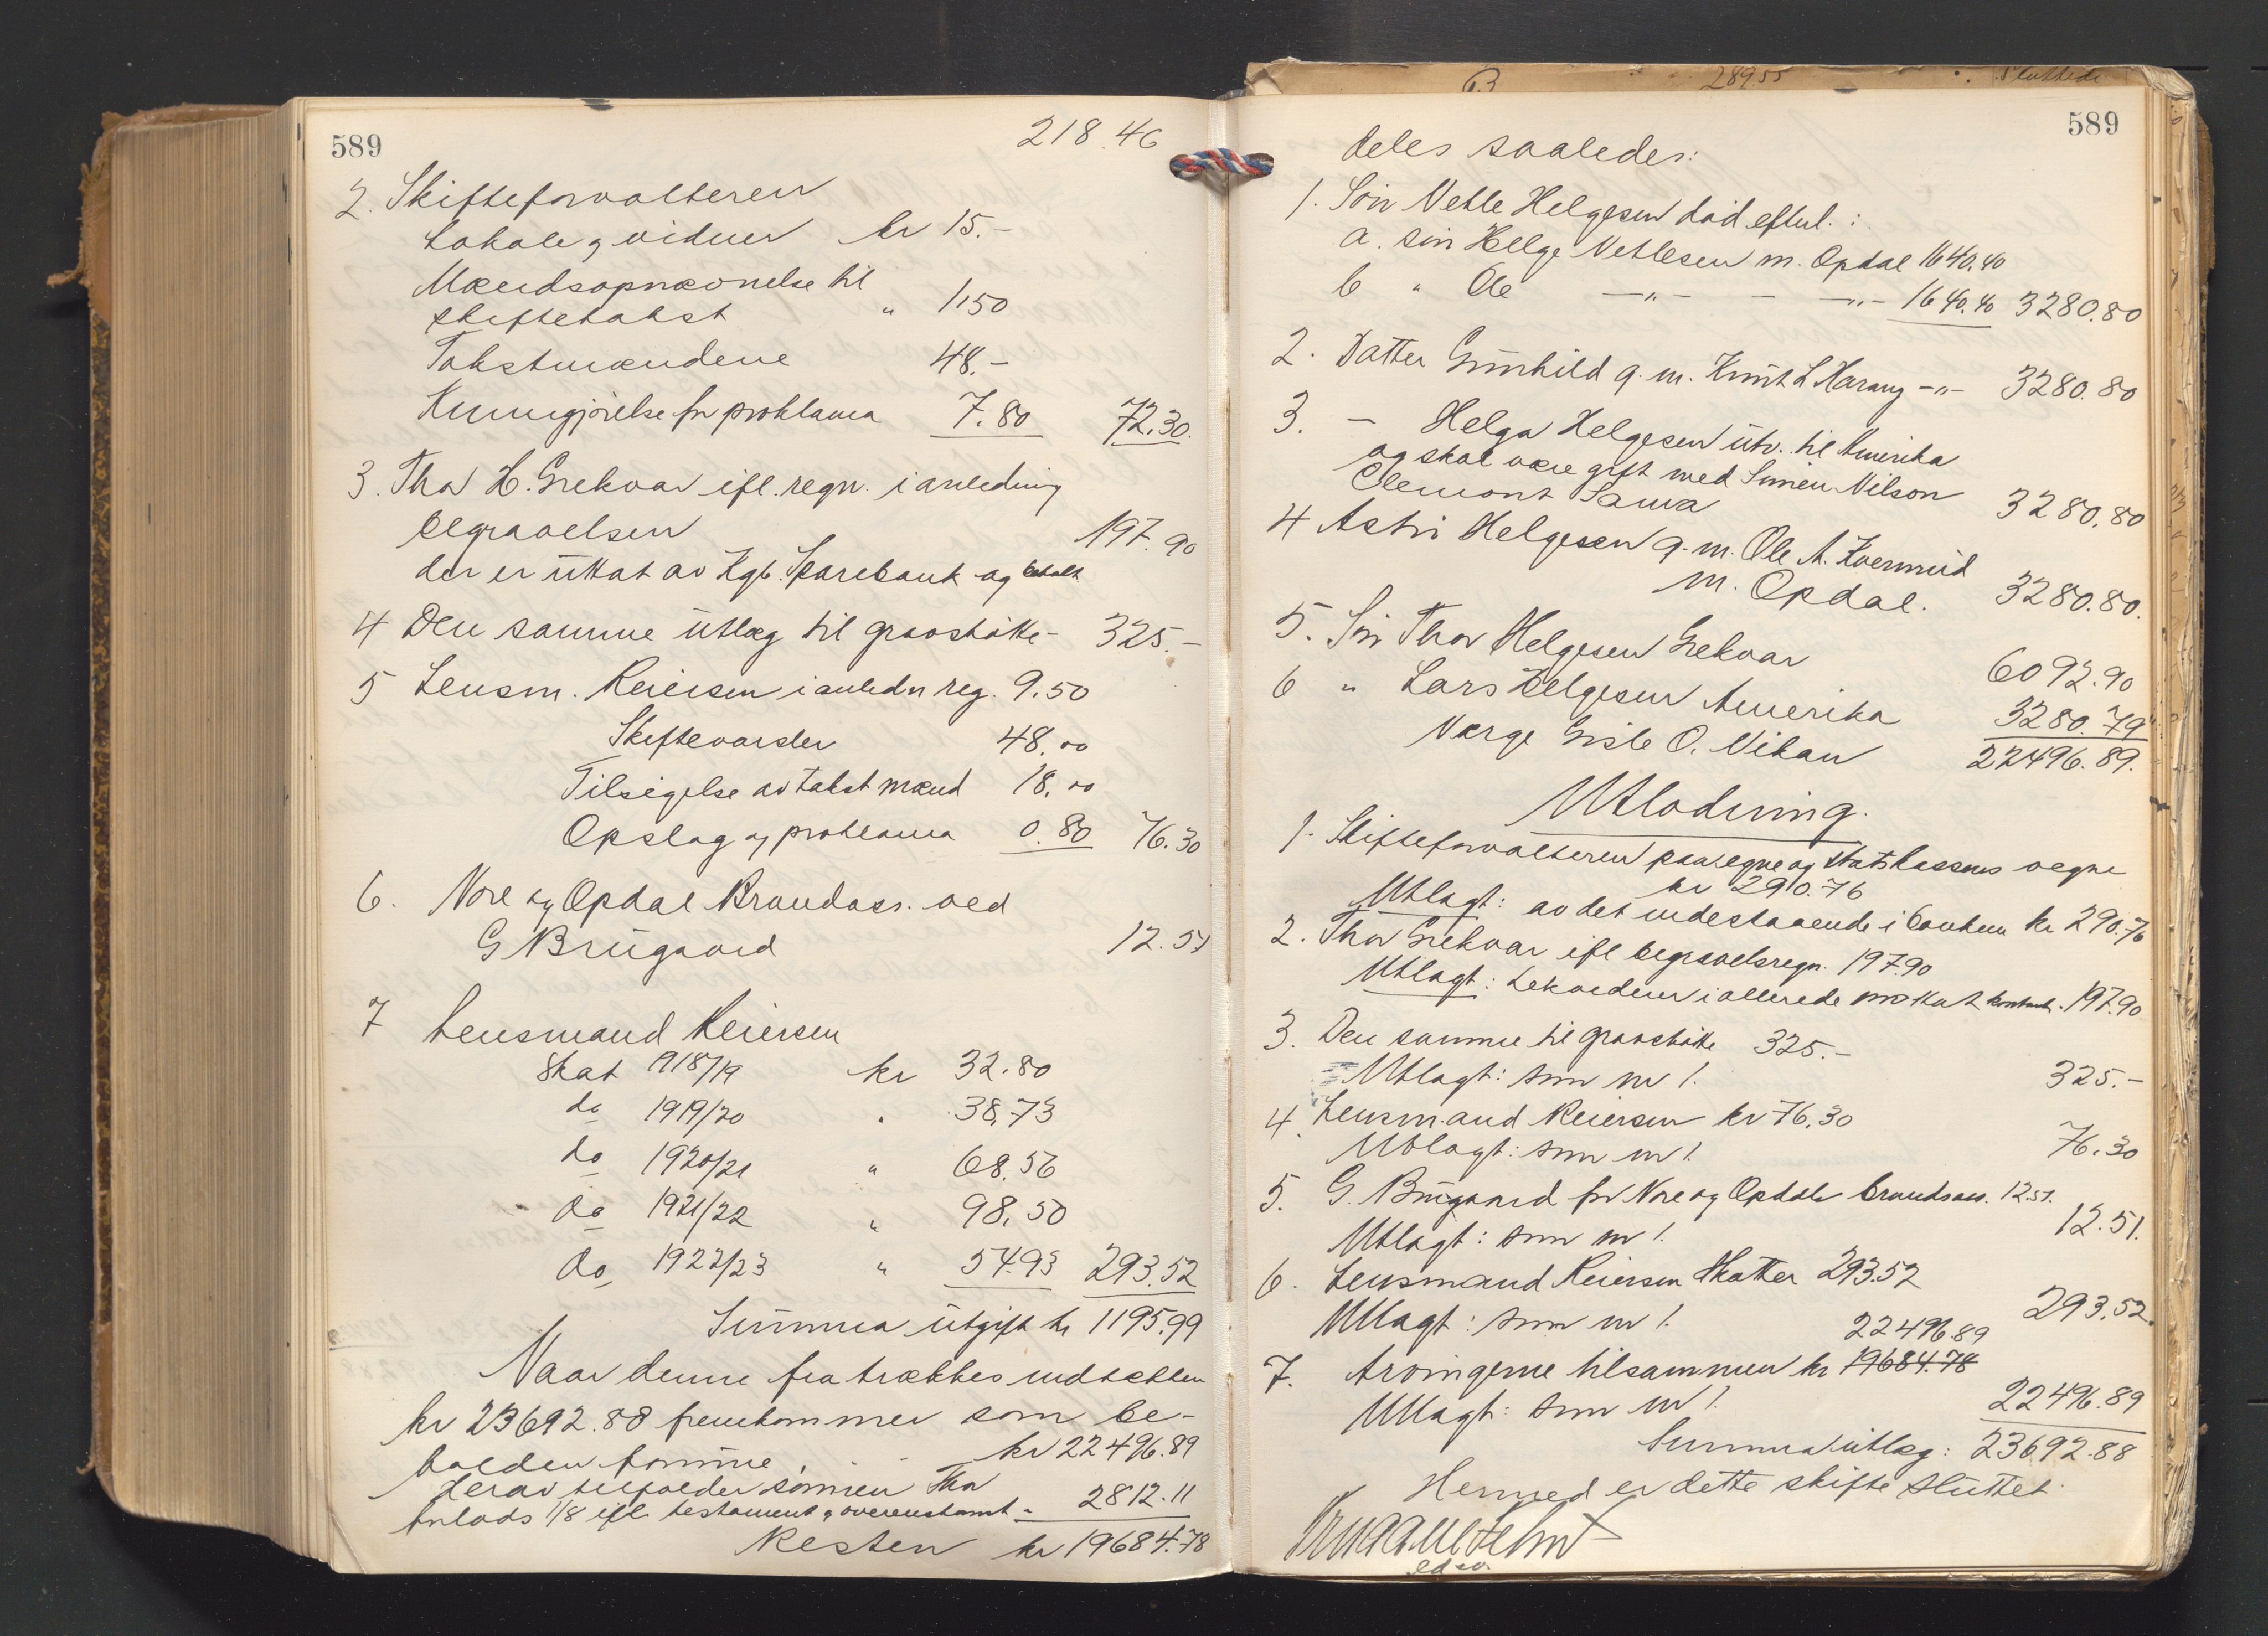 589
218.46
2. Skifteforvalteren
Lokale og vidner kr 15.-
Mændsopnævnelse til
skiftetakst " 1.50
Takstmændene 48.-
Kunngjørelse for proklama 7.80 72.30.
3. Thor H. Grekvar ifl. regn. i anledning
begravelsen 197.90
der er uttat av Kgb. Sparebank og betalt
4 Den samme utlæg til gravstøtte - 325.-
5 Lensm. Reiersen i anledn reg. 9.50
Skiftevarsler 48.00
Tilsigelse av takstmænd 18.00
Opslag og proklama 0.80 76.30
6. Nore og Opdal Brandass. ved
G Brugaard 12.51
7 Lensmand Reiersen
Skat 1918/19 kr 32.80
do 1919/20 " 38,73
do 1920/21 " 68.56
do 1921/22 " 98,50
do 1922/23 " 54.93 293.52
Summa utgift kr 1195.99
Naar denne fratrækkes indtækten
kr 23692.88 fremkommer som be-
holden formue, kr 22496.89
derav tilfalder sønnen Thor
forlods 1/8 ifl. testament og overenskomst - 2812.11
Resten kr 19684.78
63 289.55 Sluttede
589
deles saaledes:
1. Søn Vetle Helgesen død efterl. :
a. søn Helge Vetlesen m. Opdal 1640.40
b " Ole -"- - -"- 1640.40 3280.80
2. Datter Gunhild g. m. Knut L Harang -"- 3280.80
3. - Helga Helgesen utv. til Amerika
og skal være gift med Simen Nilson
Clemont Jawa 3280.80
4 Astri Helgesen g. m. Ole A. Kvermrud
m. Opdal. 3280.80.
5. Søn Thor Helgesen Grekvar 6092.90
6 " Lars Helgesen Amerika 3280.79
Værge Gisle O. Vikan 22496.89.
Utlodning.
1. Skifteforvalteren paa egne og statskassens vegne
kr 290.76
Utlagt: av det indestaaende i banken kr 290.76
2. Thor Grekvar ifl begravelsregn. 197.90
Utlagt: Likvideres i allerede mottat kontant. 197.90
3. Den samme til gravstøtte 325.-
Utlagt: som nr 1. 325.-
4. Lensmand Reiersen kr 76.30
Utlagt: som nr 1. 76.30
5. G. Brugaard for Nore og Opdals brandsass. 12.51.
Utlagt: som nr 1. 12.51.
6. Lensmand Reiersen Skatter 293.52
Utlagt: som nr 1. 293.52.
22496.89
7. Arvingerne tilsammen kr 19684.78
Utlagt: som nr 1. 22496.89
Summa utlæg: 23692.88
Hermed er dette skifte sluttet.